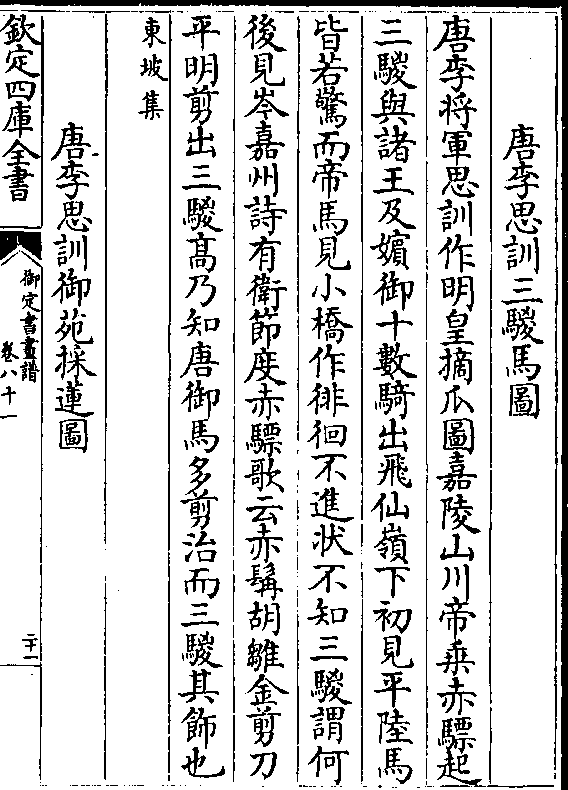 唐李思訓三騣馬圖
唐李將軍思訓作明皇摘瓜圖嘉陵山川帝乗赤驃起
三騣與諸王及嬪御十數騎出飛仙嶺下初見平陸馬
皆若驚而帝馬見小橋作徘徊不進状不知三騣謂何
後見岑嘉州詩有衛節度赤驃歌云赤髯胡雛金剪刀
平明剪出三騣髙乃知唐御馬多剪治而三騣其飾也
東坡集
唐李思訓御苑採蓮圖
欽定四庫全書
御定書畫譜
卷八十一
二十一